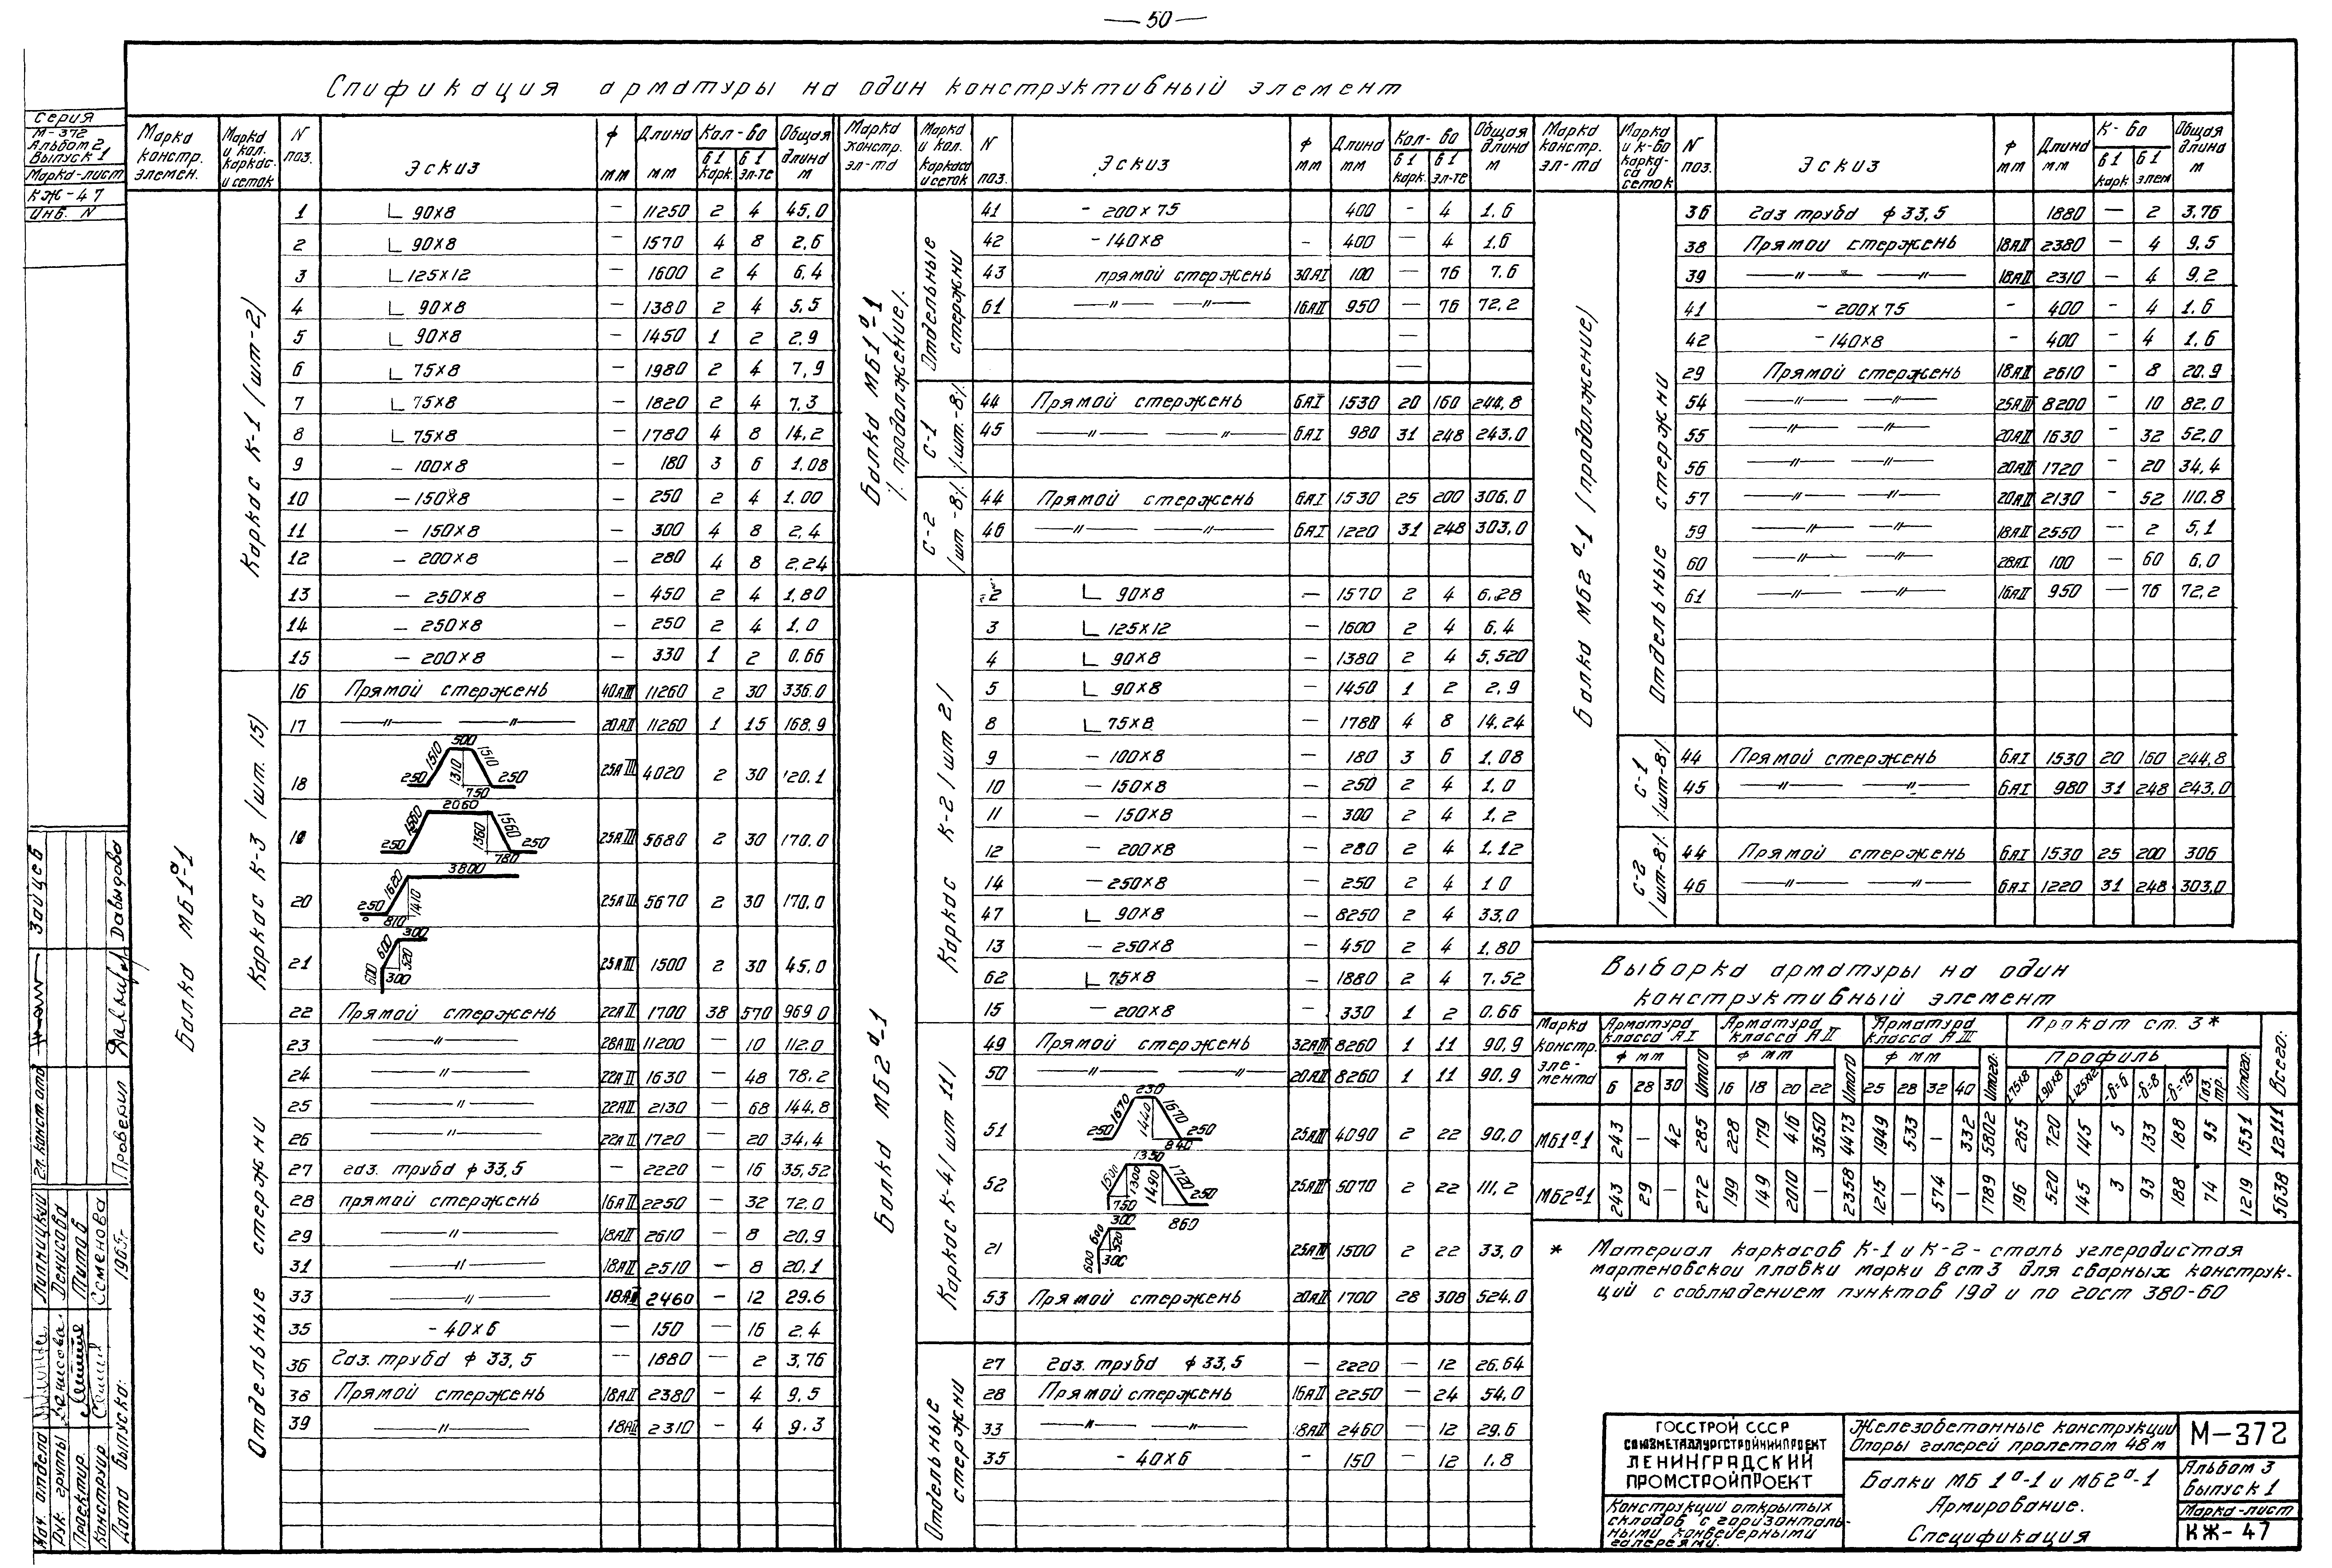 — 50 —
Спификация арматуры на один конструктивный элемент
Серия
М-372
Альбом 2
Выпуск 1
Марка-лист
КЖ-47
Инв. N
Марка констр. элемен. | Марка и кол. каркас. и сеток | N поз. | Эскиз | ф мм | Длина мм | Кол-во в 1 карк. | в 1 эл-те | Общая длина м
Балка МБ1а-1
Каркас К-1 /шт-2/
1 L 90×8 — 11250 2 4 45,0
2 L 90×8 — 1570 4 8 2,6
3 L 125×12 — 1600 2 4 6,4
4 L 90×8 — 1380 2 4 5,5
5 L 90×8 — 1450 1 2 2,9
6 L 75×8 — 1980 2 4 7,9
7 L 75×8 — 1820 2 4 7,3
8 L 75×8 — 1780 4 8 14,2
9 — 100×8 — 180 3 6 1,08
10 — 150×8 — 250 2 4 1,00
11 — 150×8 — 300 4 8 2,4
12 — 200×8 — 280 4 8 2,24
13 — 250×8 — 450 2 4 1,80
14 — 250×8 — 250 2 4 1,0
15 — 200×8 — 330 1 2 0,66
Каркас К-3 /шт. 15/
16 Прямой стержень 40АIII 11260 2 30 336,0
17 —〃— —〃— 20АII 11260 1 15 168,9
18 250 1510 500 1310 1510 250 750 25АIII 4020 2 30 120.1
19 250 1560 2060 1360 1560 250 780 25АIII 5680 2 30 170.0
20 250 1620 3800 1410 810 25АIII 5670 2 30 170,0
21 600 600 300 520 300 25АIII 1500 2 30 45,0
22 Прямой стержень 22АII 1700 38 570 969 0
Отдельные стержни
23 —〃— 28АIII 11200 — 10 112.0
24 —〃— —〃— 22АII 1630 — 48 78,2
25 —〃— 22АII 2130 — 68 144,8
26 —〃— 22АII 1720 — 20 34,4
27 газ. труба ф 33,5 — 2220 — 16 35,52
28 прямой стержень 16АII 2250 — 32 72,0
29 —〃— 18АII 2610 — 8 20,9
31 —〃— 18АII 2510 — 8 20,1
33 —〃— 18АII 2460 — 12 29.6
35 - 40×6 — 150 — 16 2,4
36 Газ. труба ф 33,5 — 1880 — 2 3,76
38 Прямой стержень 18АII 2380 — 4 9,5
39 —〃— 18АII 2310 — 4 9.3
Марка констр. эл-та | Марка и кол. каркаса и сеток | N поз. | Эскиз | ф мм | Длина мм | Кол-во в 1 карк. | в 1 эл-те | Общая длина м
Балка МБ1а-1 /. продолжение/.
Отдельные стержни
41 - 200×75 400 - 4 1,6
42 - 140×8 - 400 — 4 1,6
43 прямой стержень 30АI 100 — 76 7.6
61 —〃— —〃— 16АII 950 — 76 72,2
С-1 /.шт.-8/.
44 Прямой стержень 6АI 1530 20 160 244,8
45 —〃— —〃— 6АI 980 31 248 243,0
С-2 /шт-8/.
44 Прямой стержень 6АI 1530 25 200 306,0
46 —〃— —〃— 6АI 1220 31 248 303,0
Балка МБ2а-1
Каркас К-2 /шт 2/
2 L 90×8 — 1570 2 4 6,28
3 L 125×12 — 1600 2 4 6,4
4 L 90×8 — 1380 2 4 5,520
5 L 90×8 — 1450 1 2 2,9
8 L 75×8 — 1780 4 8 14,24
9 - 100×8 — 180 3 6 1,08
10 - 150×8 — 250 2 4 1,0
11 - 150×8 — 300 2 4 1,2
12 - 200×8 — 280 2 4 1,12
14 - 250×8 — 250 2 4 1 0
47 L 90×8 — 8250 2 4 33,0
13 - 250×8 — 450 2 4 1,80
62 L 75×8 — 1880 2 4 7,52
15 - 200×8 — 330 1 2 0.66
Каркас К-4/шт 11/
49 Прямой стержень 32АIII 8260 1 11 90,9
50 —〃— —〃— 20АII 8260 1 11 90,9
51 250 1670 230 1440 1670 250 840 25АIII 4090 2 22 90,0
52 1350 1300 1490 1720 250 750 860 25АIII 5070 2 22 111,2
21 600 600 300 520 300 25АIII 1500 2 22 33,0
53 Прямой стержень 20АII 1700 28 308 524.0
Отдельные стержни
27 Газ. труба ф 33,5 — 2220 — 12 26.64
28 Прямой стержень 16АII 2250 — 24 54.0
33 —〃— —〃— 18АII 2460 — 12 29.6
35 - 40×6 - 150 — 12 1.8
Марка констр. эл-та | Марка и к-во каркаса и сеток | N поз. | Эскиз | ф мм | Длина мм | К-во в 1 карк | в 1 элем | Общая длина м
Балка МБ2а-1 /продолжение/
Отдельные стержни
36 Газ труба ф 33,5 1880 — 2 3,76
38 Прямой стержень 18АII 2380 — 4 9,5
39 —〃— —〃— 18АII 2310 — 4 9,2
41 - 200×75 - 400 - 4 1,6
42 - 140×8 - 400 - 4 1,6
29 Прямой стержень 18АII 2610 - 8 20,9
54 —〃— —〃— 25АIII 8200 - 10 82.0
55 —〃— —〃— 20АII 1630 - 32 52,0
56 —〃— —〃— 20АII 1720 - 20 34,4
57 —〃— —〃— 20АII 2130 - 52 110.8
59 —〃— —〃— 18АII 2550 — 2 5,1
60 —〃— —〃— 28АI 100 — 60 6,0
61 —〃— —〃— 16АII 950 — 76 72,2
С-1 /шт-8/
44 Прямой стержень 6АI 1530 20 160 244,8
45 —〃— —〃— 6АI 980 31 248 243,0
С-2 /шт-8/.
44 Прямой стержень 6АI 1530 25 200 306
46 —〃— —〃— 6АI 1220 31 248 303,0
Выборка арматуры на один
конструктивный элемент
Марка констр. эле-мента | Арматура класса АI | Арматура класса АII | Арматура класса АIII | Прокат ст. 3* | Всего:
ф мм | Итого | ф мм | Итого | ф мм | Итого. | Профиль | Итого:
6 28 30 16 18 20 22 25 28 32 40 L75×8 L90×8 L125×12 -δ=6 -δ=8 -δ=75 Газ. тр.
МБ1а-1 243 — 42 285 228 179 416 3650 4473 1949 533 — 332 5802 265 720 145 5 133 188 95 1551 12111
МБ2а-1 243 29 — 272 199 149 2010 — 2358 1215 — 574 — 1789 196 520 145 3 93 188 74 1219 5638
* Материал каркасов К-1 и К-2 - сталь углеродистая
мартеновской плавки марки Вст3 для сварных конструк-
ций с соблюдением пунктов 19д и по гост 380-60
ГОССТРОЙ СССР
СОЮЗМЕТАЛЛУРГСТРОЙНИИПРОЕКТ
ЛЕНИНГРАДСКИЙ
ПРОМСТРОЙПРОЕКТ
Конструкции открытых
складов с горизонталь-
ными конвейерными
галереями.
Железобетонные конструкции
Опоры галерей пролетом 48 м
Балки МБ 1а-1 и МБ2а-1
Армирование.
Спецификация
М-372
Альбом 3
Выпуск 1
Марка-лист
КЖ-47
Нач. отдела Липницкий
Рук. группы Денисова
Проектир. Титов
Конструир Семенова
Дата выпуска: 1965г.
Гл. конст. отд. Зайцев
Проверил Давыдова